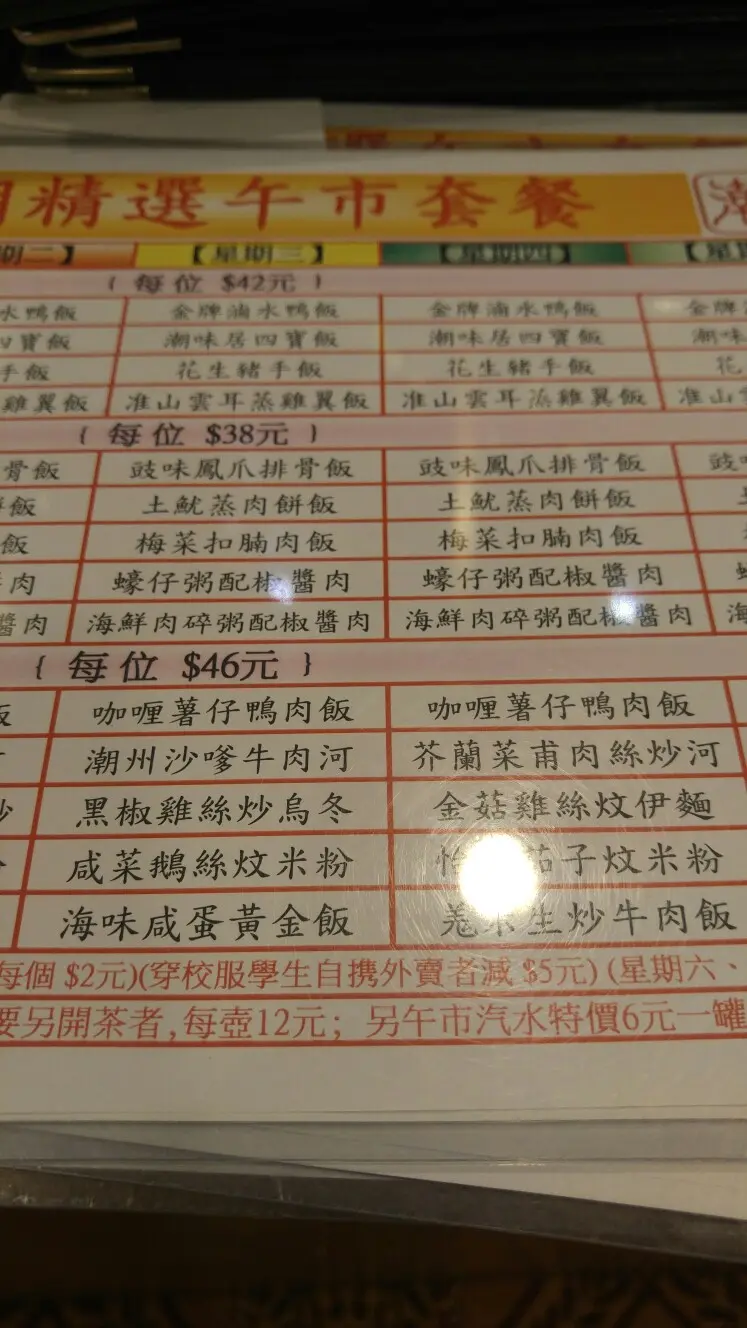 精選午市套餐
期二】 【星期三】 【星期四】
{ 每位 $42元 }
水鴨飯 金牌滷水鴨飯 金牌滷水鴨飯 金牌
寶飯 潮味居四寶飯 潮味居四寶飯 潮味
手飯 花生豬手飯 花生豬手飯 花
雞翼飯 准山雲耳蒸雞翼飯 准山雲耳蒸雞翼飯 准山
{ 每位 $38元 }
骨飯 豉味鳳爪排骨飯 豉味鳳爪排骨飯 豉
飯 土魷蒸肉餅飯 土魷蒸肉餅飯
飯 梅菜扣腩肉飯 梅菜扣腩肉飯
肉 蠔仔粥配椒醬肉 蠔仔粥配椒醬肉
醬肉 海鮮肉碎粥配椒醬肉 海鮮肉碎粥配椒醬肉 海
{ 每位 $46元 }
飯 咖喱薯仔鴨肉飯 咖喱薯仔鴨肉飯
潮州沙嗲牛肉河 芥蘭菜甫肉絲炒河
黑椒雞絲炒烏冬 金菇雞絲炆伊麵
咸菜鵝絲炆米粉 茄子炆米粉
海味咸蛋黃金飯 生炒牛肉飯
每個 $2元)(穿校服學生自携外賣者減 $5元) (星期六、
要另開茶者,每壺12元; 另午市汽水特價6元一罐